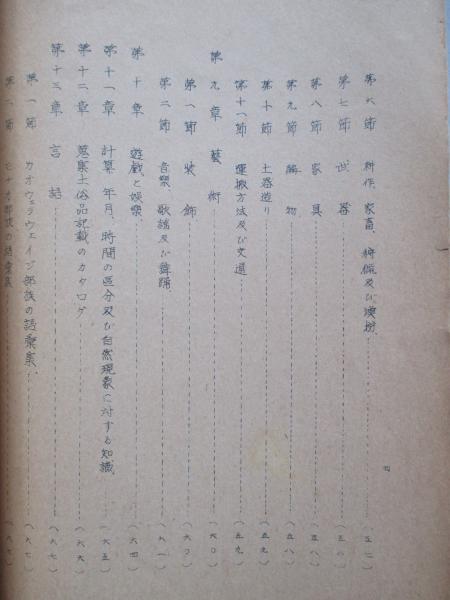 第六節 耕作、家畜、狩猟及び漁撈、（五一）
第七節 武器（五六）
第八節 家具（五八）
第九節 編物（五八）
第十節 土器造り（五九）
第十一節 運搬方法及び交通（五九）
第九章 藝術（六〇）
第一節 装飾（六〇）
第二節 音樂、歌謡及び舞踊、（六一）
第十章 遊戯と娯樂、（六四）
第十一章 計算、年月、時間の区分及び自然現象に対する知識、（六五）
第十二章 蒐集土俗品記載のカタログ（六六）
第十三章 言語（六七）
第一節 カオウェラウェイジ部族の語彙集、（六七）
第二節 部族の語彙集